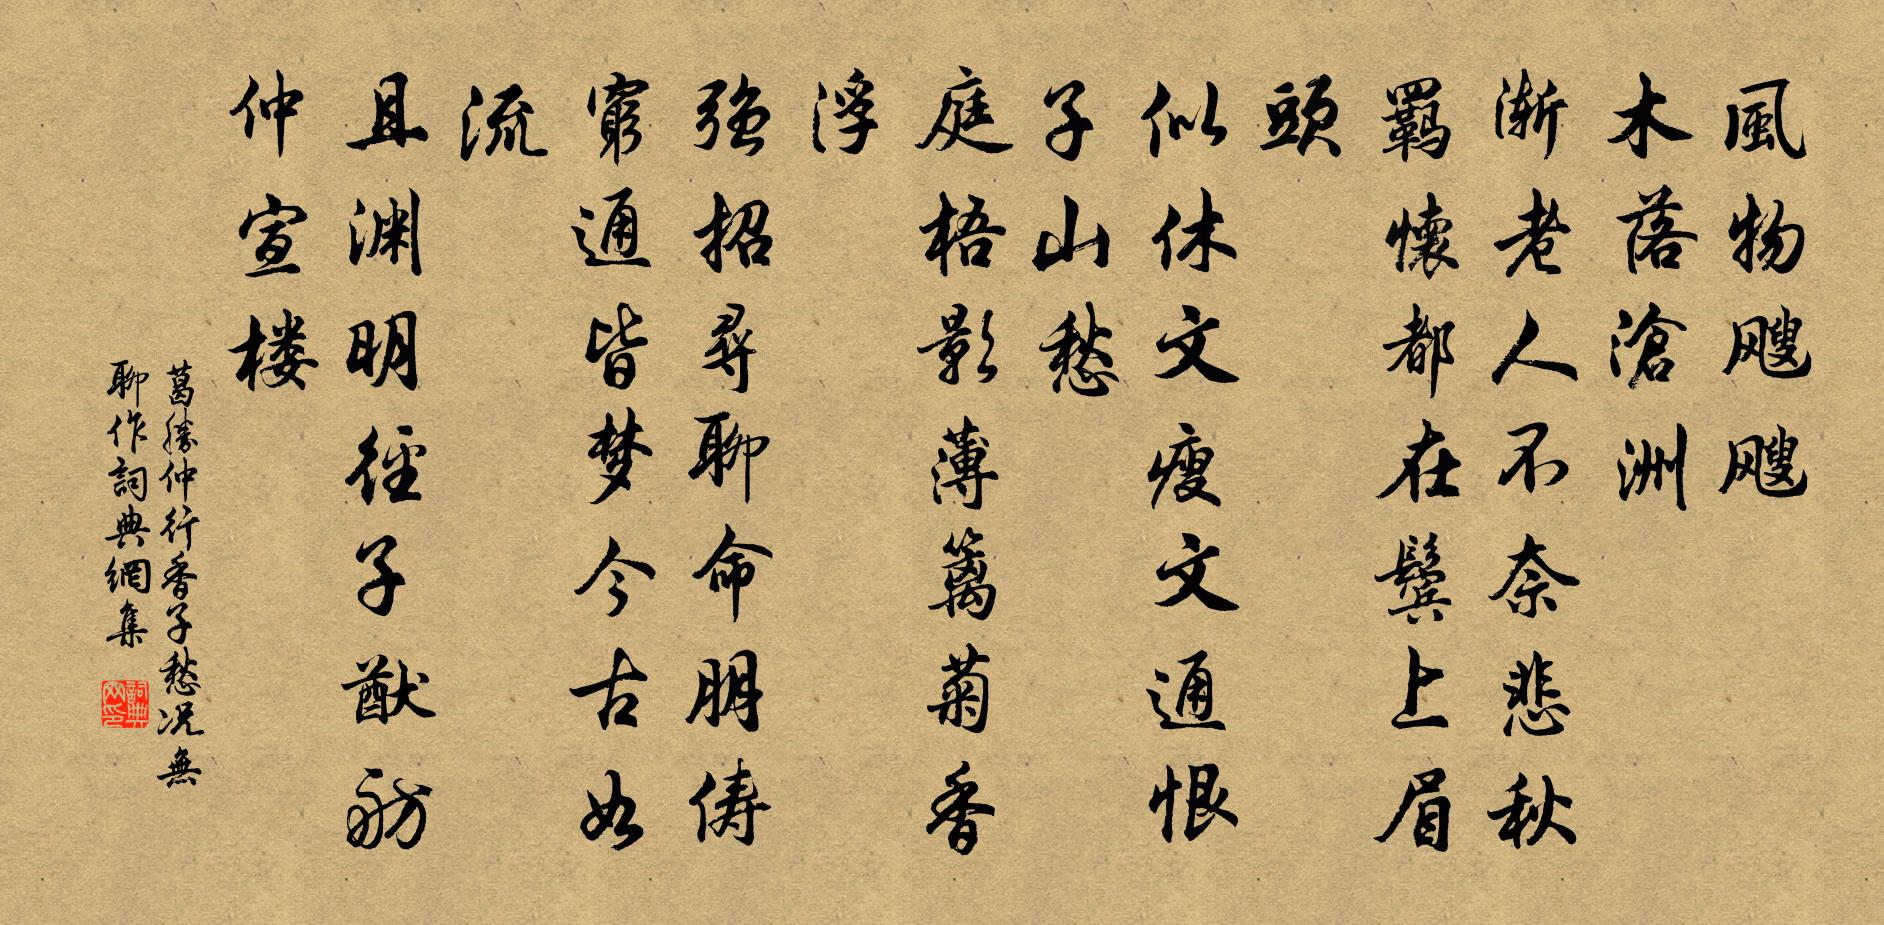 風物飕飕
木落滄洲
渐老人不奈悲秋
羁懷都在鬓上眉
頭
似休文瘦文通恨
子山愁
庭梧影薄篱菊香
浮
强招尋聊命朋俦
窮通皆梦今古如
流
且渊明徑子猷舫
仲宣楼
葛勝仲行香子愁况無
聊作詞典網集
詞典网印